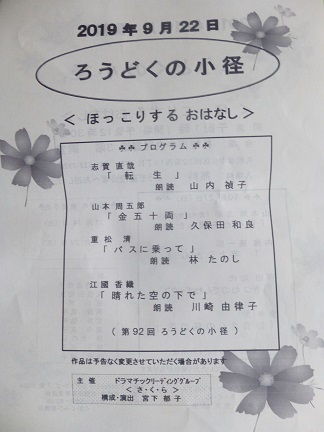 2019年9月22日
ろうどくの小径
＜ ほっこりする おはなし ＞
♣♣ プログラム ♣♣
志賀 直哉
「 転 生 」
朗 読 山 内 禎 子
山本 周五郎
「 金 五 十 両 」
朗 読 久 保 田 和 良
重 松 清
「 バ ス に 乗 っ て 」
朗 読 林 た の し
江 國 香 織
「 晴 れ た 空 の 下 で 」
朗 読 川 崎 由 律 子
（ 第 9 2 回 ろ う ど く の 小 径 ）
作品は予告なく変更させていただく場合があります
主 催 ドラマチックリーディンググループ
＜ さ・く・ら ＞
構成・演出 宮下 郁子